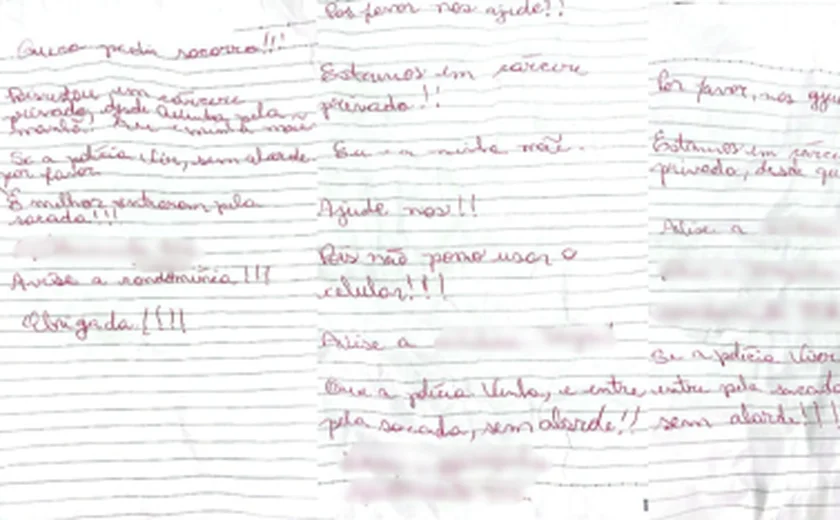 Quero pedir socorro!!!
em cárcere
privado, desde Quinta pela
manhã. Eu e minha mãe
Se a polícia vir, sem alarde
por favor
É melhor entrarem pela
sacada!!!
Avise a condomínia!!!
Obrigada!!!!
Por favor nos ajude!!
Estamos em cárcere
privado!!
Eu e a minha mãe.
Ajude nos!!
Pois não posso usar o
celular!!!
Avise a
Que a polícia venha, e entre
pela sacada, sem alarde!!
Por favor, nos aju
Estamos em cárce
privado, desde qu
Avise a
Se a polícia vier
entre pela sacada
sem alarde!!!!